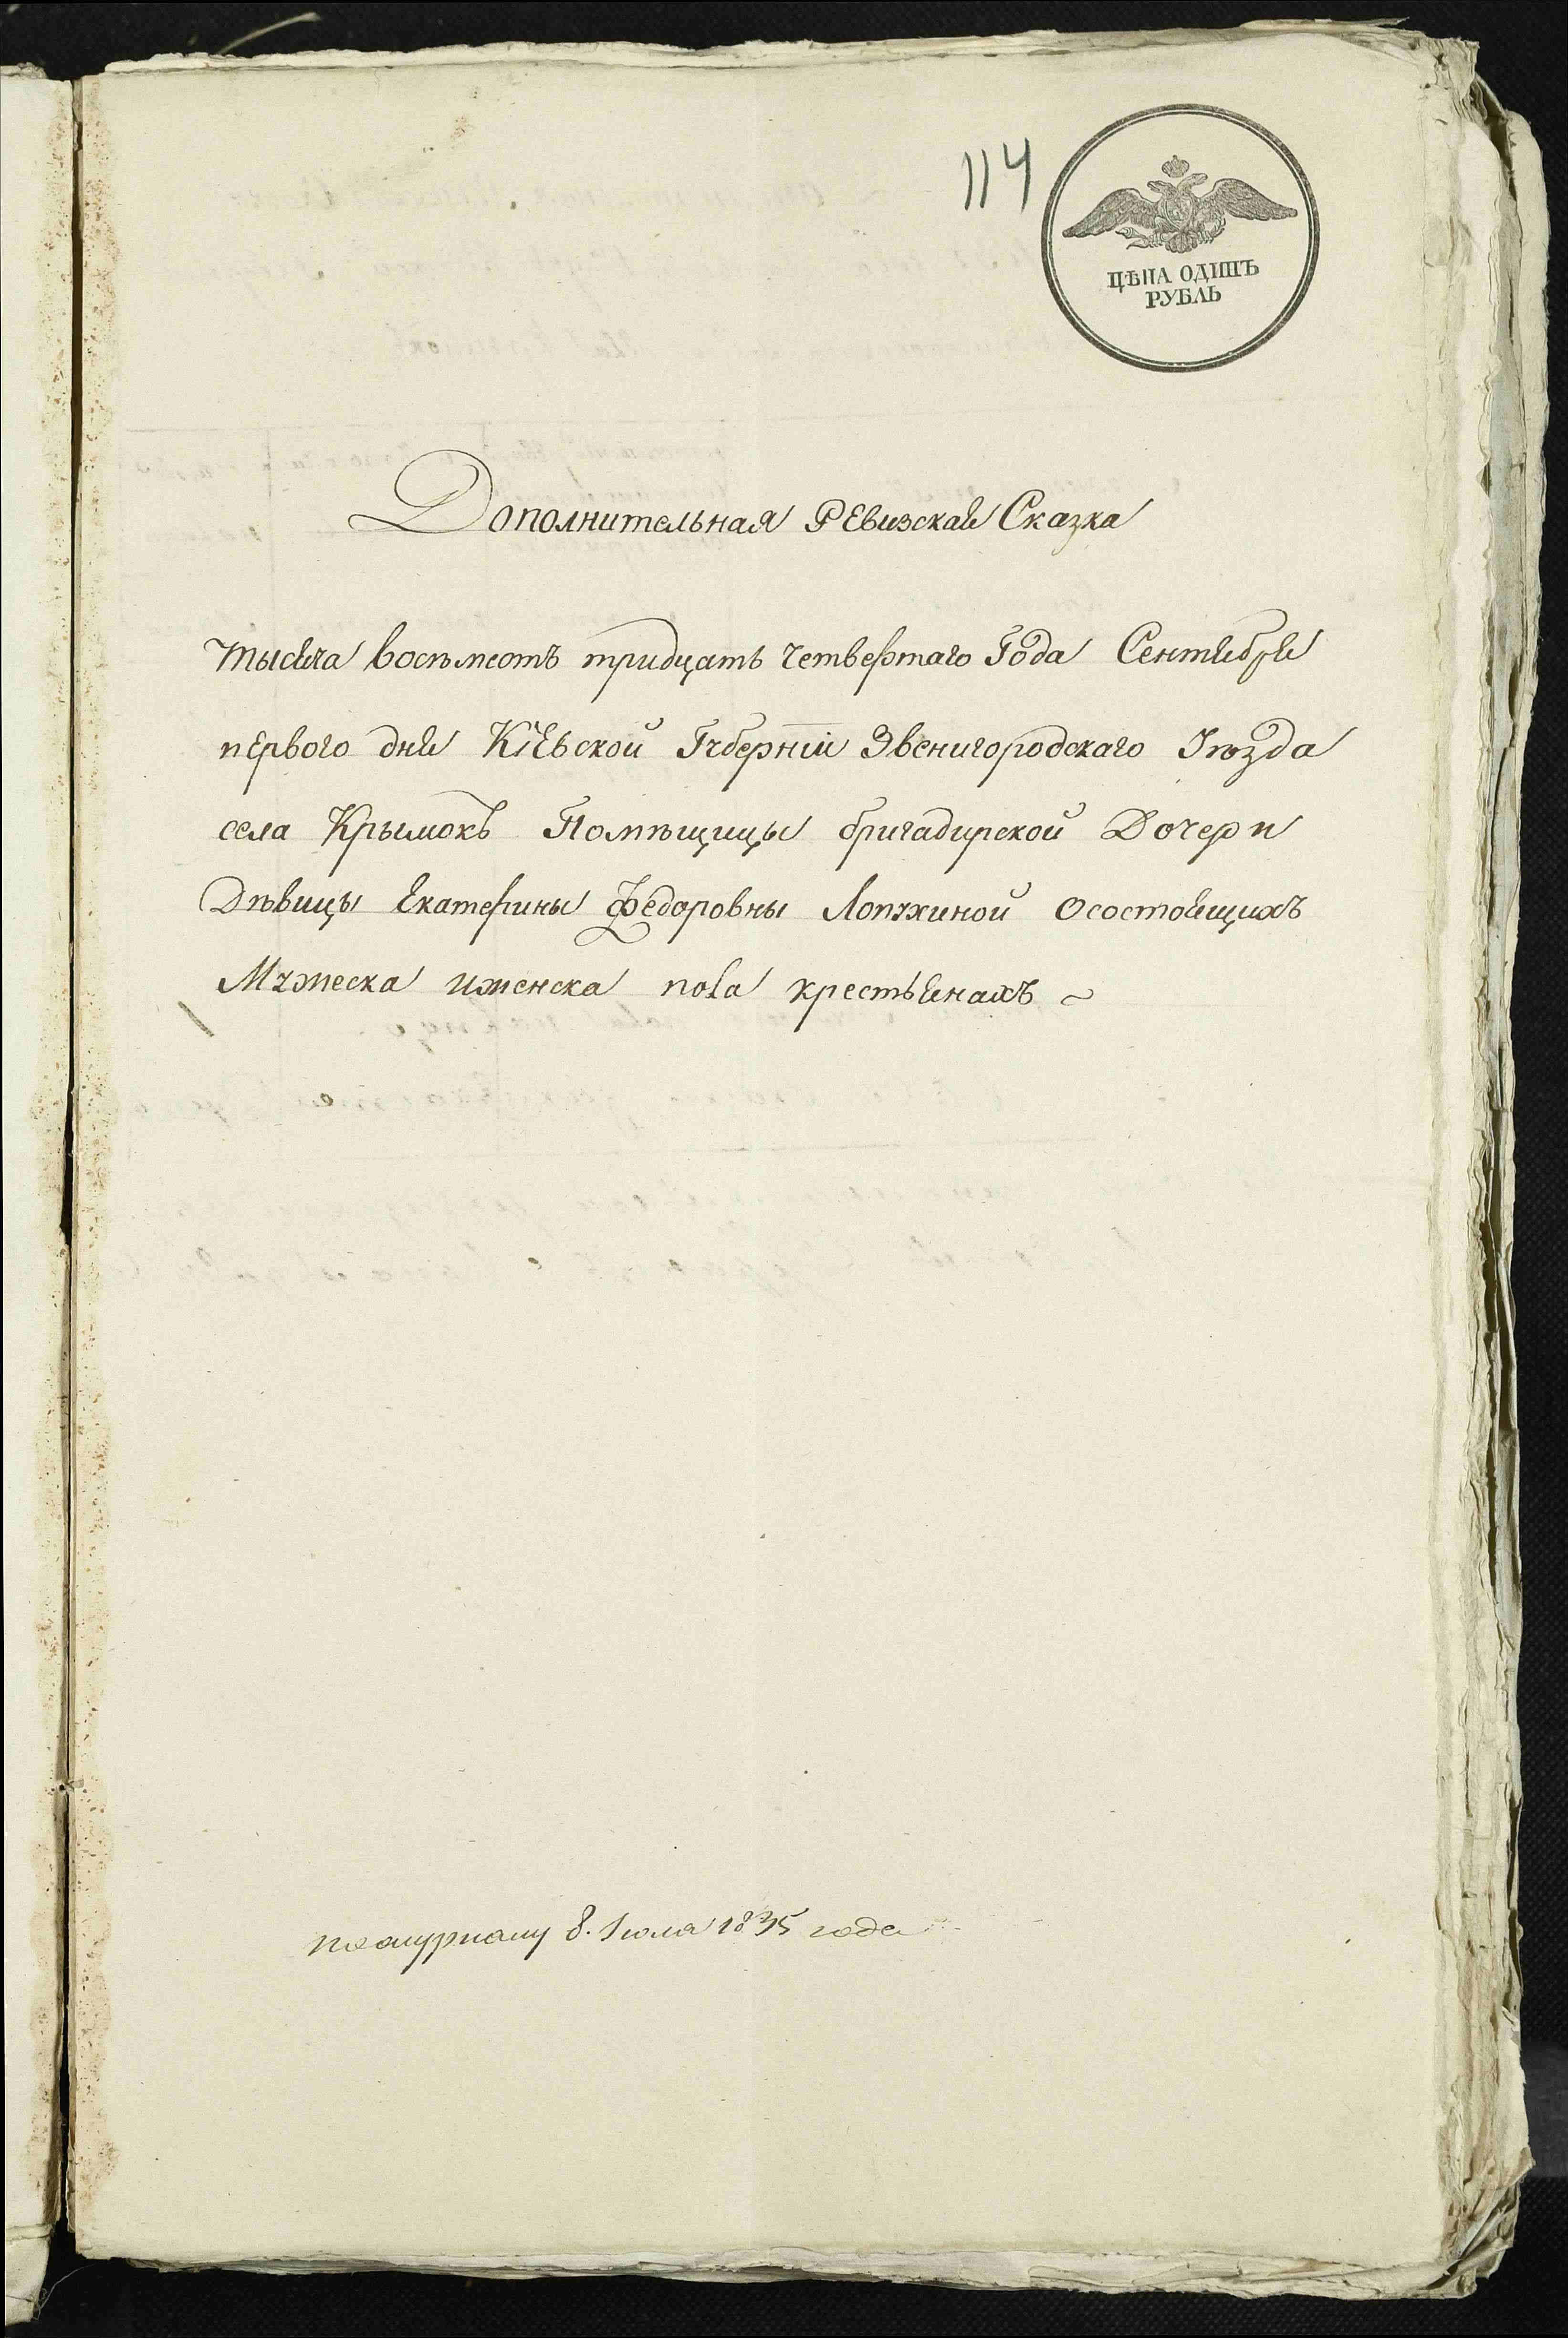 114
ЦѢНА ОДИНЪ
РУБЛЬ
Дополнительная Ревизская Сказка
тысяча восемсотъ тридцать четвертаго Года Сентября
первого дня Кіевской Губерніи Звенигородскаго Уѣзда
села Крымокъ Помѣщицы бригадирской Дочери
Дѣвицы Екатерины Федоровны Лопухиной Осостоящихъ
Мужеска иженска пола крестьянахъ ~
по журналу 8. Іюля 1835 года